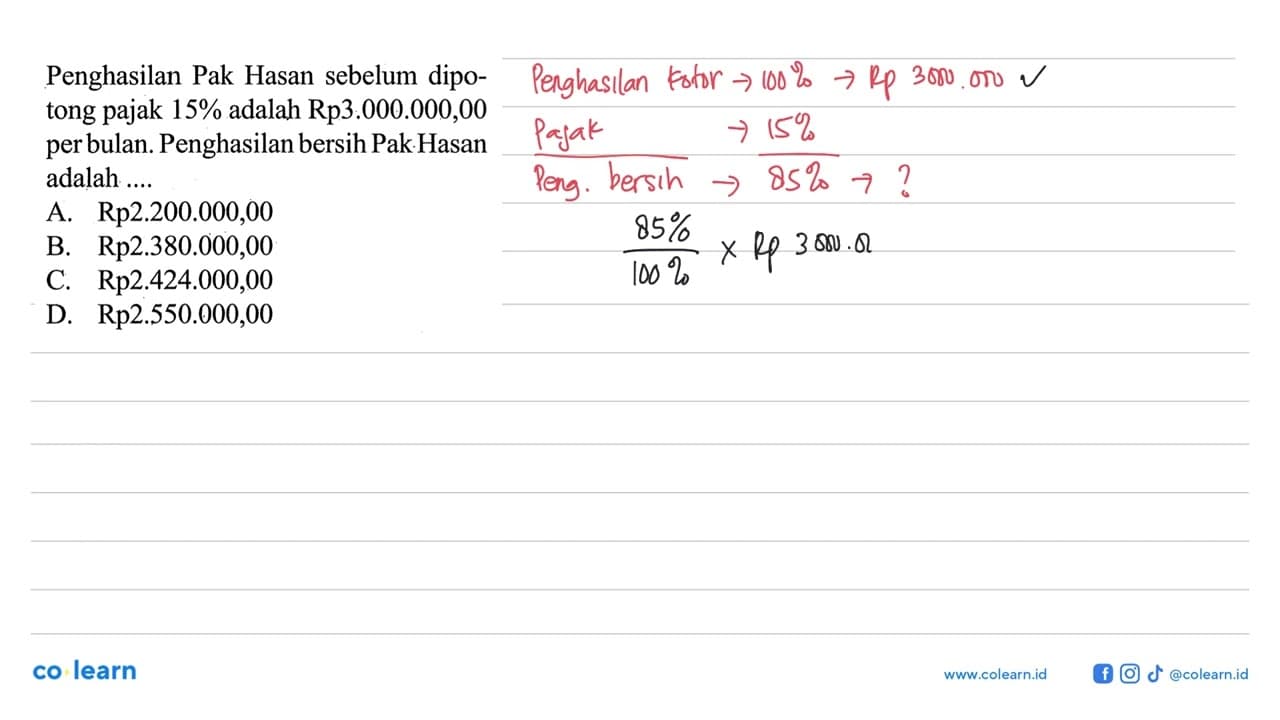 Penghasilan Pak Hasan sebelum dipo-
tong pajak 15% adalah Rp3.000.000,00
per bulan. Penghasilan bersih Pak Hasan
adalah ....
A. Rp2.200.000,00
B. Rp2.380.000,00
C. Rp2.424.000,00
D. Rp2.550.000,00
Penghasilan kotor → 100% → Rp 3000.000 ✓
Pajak → 15%
Peng. bersih → 85% → ?
85%
100% × Rp
co learn
www.colearn.id @colearn.id